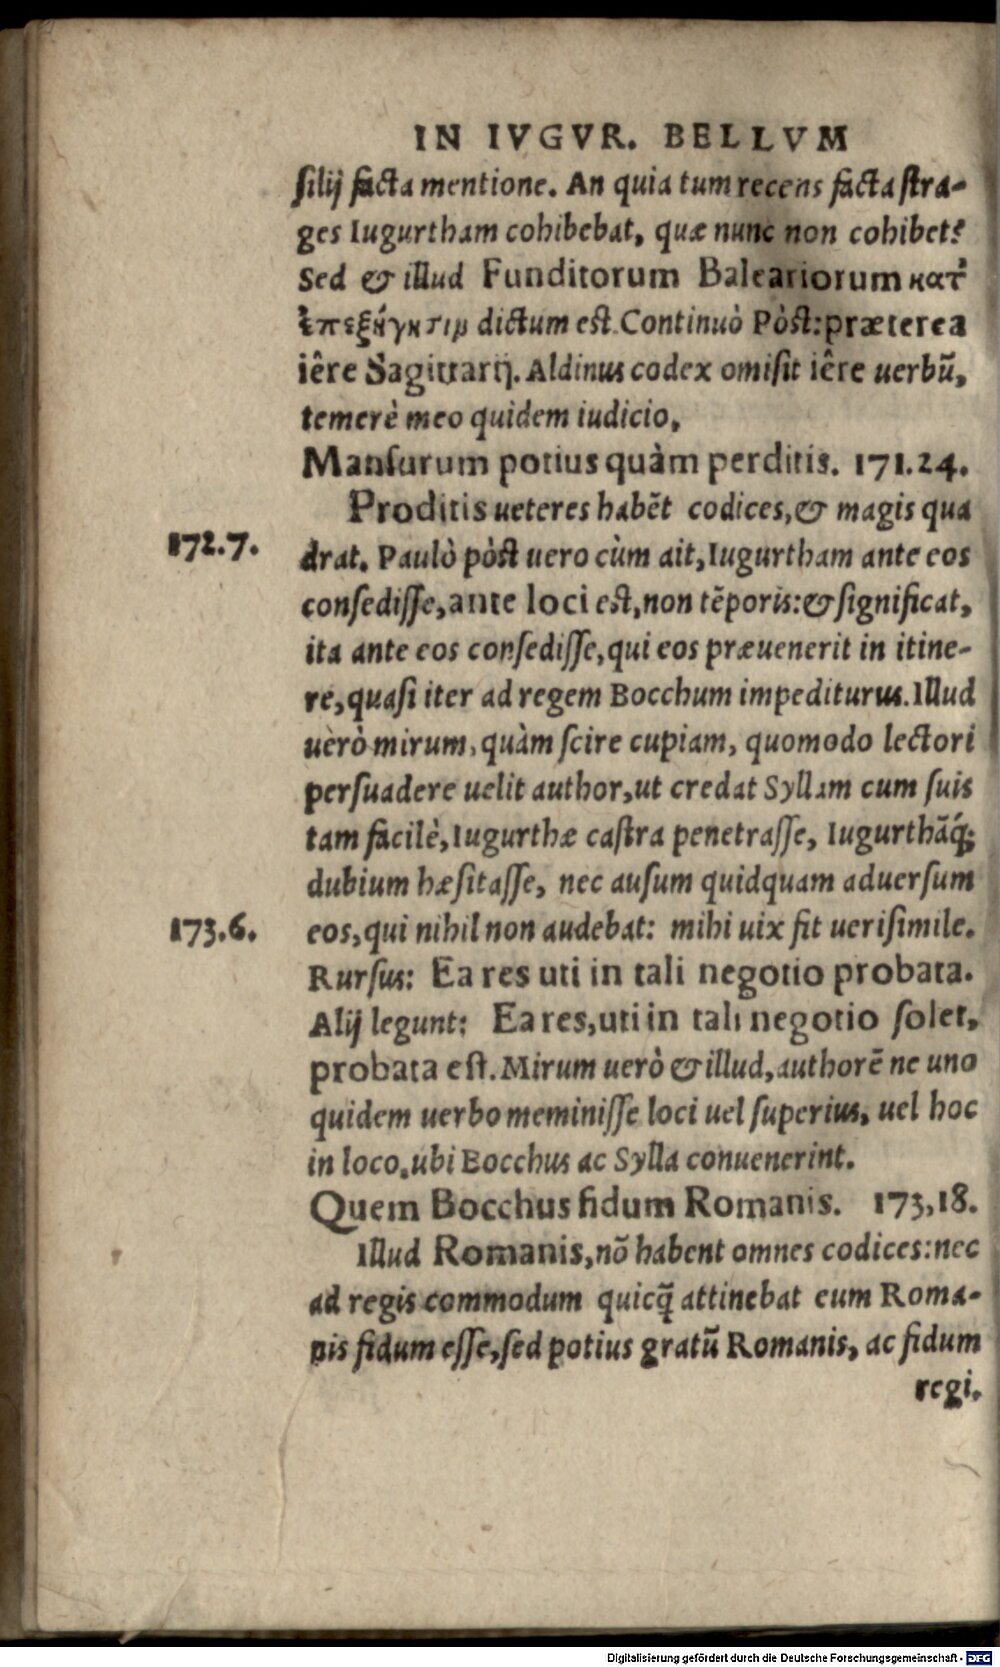 IN IVGVR. BELLVM
silij facta mentione. An quia tum recens facta stra-
ges Iugurtham cohibebat, quæ nunc non cohibet?
Sed & illud Funditorum Baleariorum κατ'
ἐπεξήγησιν dictum est. Continuò Pòst: præterea
iêre Sagittarij. Aldinus codex omisit iêre uerbū,
temerè meo quidem iudicio.
Mansurum potius quàm perditis. 171.24.
Proditis ueteres habēt codices, & magis qua
172.7.
drat. Paulò pòst uero cùm ait, Iugurtham ante eos
consedisse, ante loci est, non tēporis: & significat,
ita ante eos consedisse, qui eos præuenerit in itine-
re, quasi iter ad regem Bocchum impediturus. Illud
uèrò mirum, quàm scire cupiam, quomodo lectori
persuadere uelit author, ut credat Syllam cum suis
tam facilè, Iugurthæ castra penetrasse, Iugurthāq́;
dubium hæsitasse, nec ausum quidquam aduersum
173.6.
eos, qui nihil non audebat: mihi uix fit uerisimile.
Rursus: Ea res uti in tali negotio probata.
Alij legunt: Ea res, uti in tali negotio solet,
probata est. Mirum uerò & illud, authorē ne uno
quidem uerbo meminisse loci uel superius, uel hoc
in loco, ubi Bocchus ac Sylla conuenerint.
Quem Bocchus fidum Romanis. 173,18.
Illud Romanis, nō habent omnes codices: nec
ad regis commodum quicq̃ attinebat eum Roma-
nis fidum esse, sed potius gratū Romanis, ac fidum
regi.
Digitalisierung gefördert durch die Deutsche Forschungsgemeinschaft - DFG